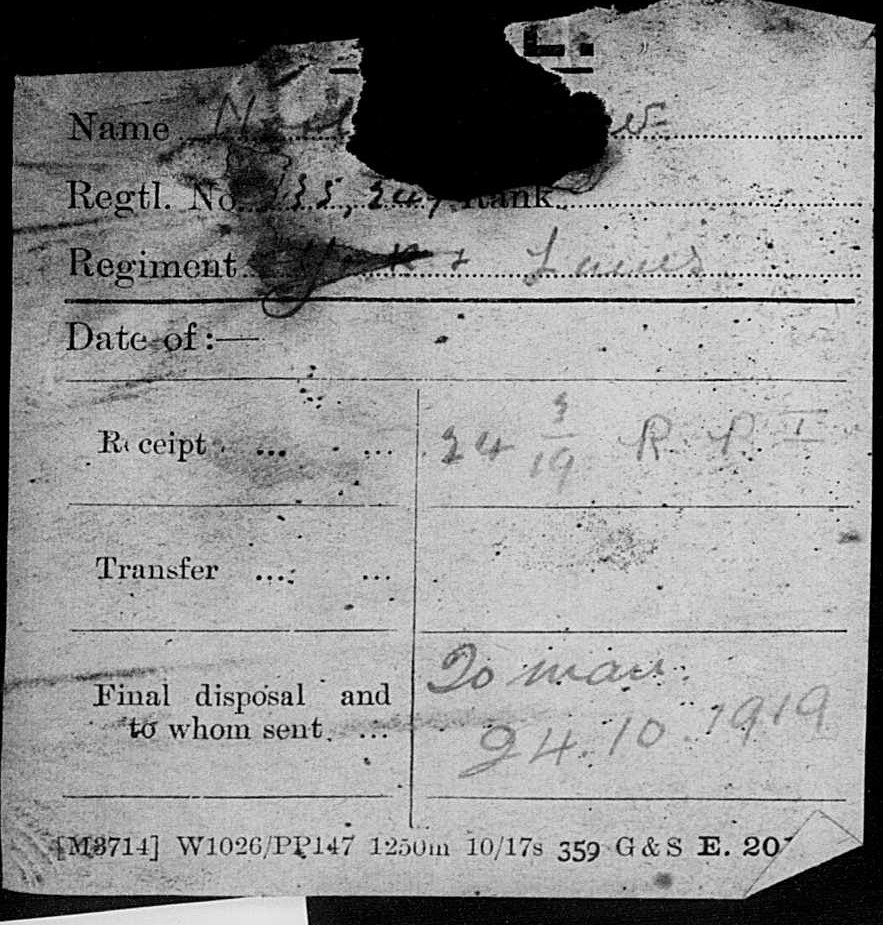 L.
Name
Regtl. No. Rank
Regiment Y & Lancs
Date of :—
Receipt ... ... 24 3/19 R. P. I
Transfer ... ...
Final disposal and
to whom sent. ... To man.
24.10.1919
[M3714] W1026/PP147 1250m 10/17s 359 G & S E. 20